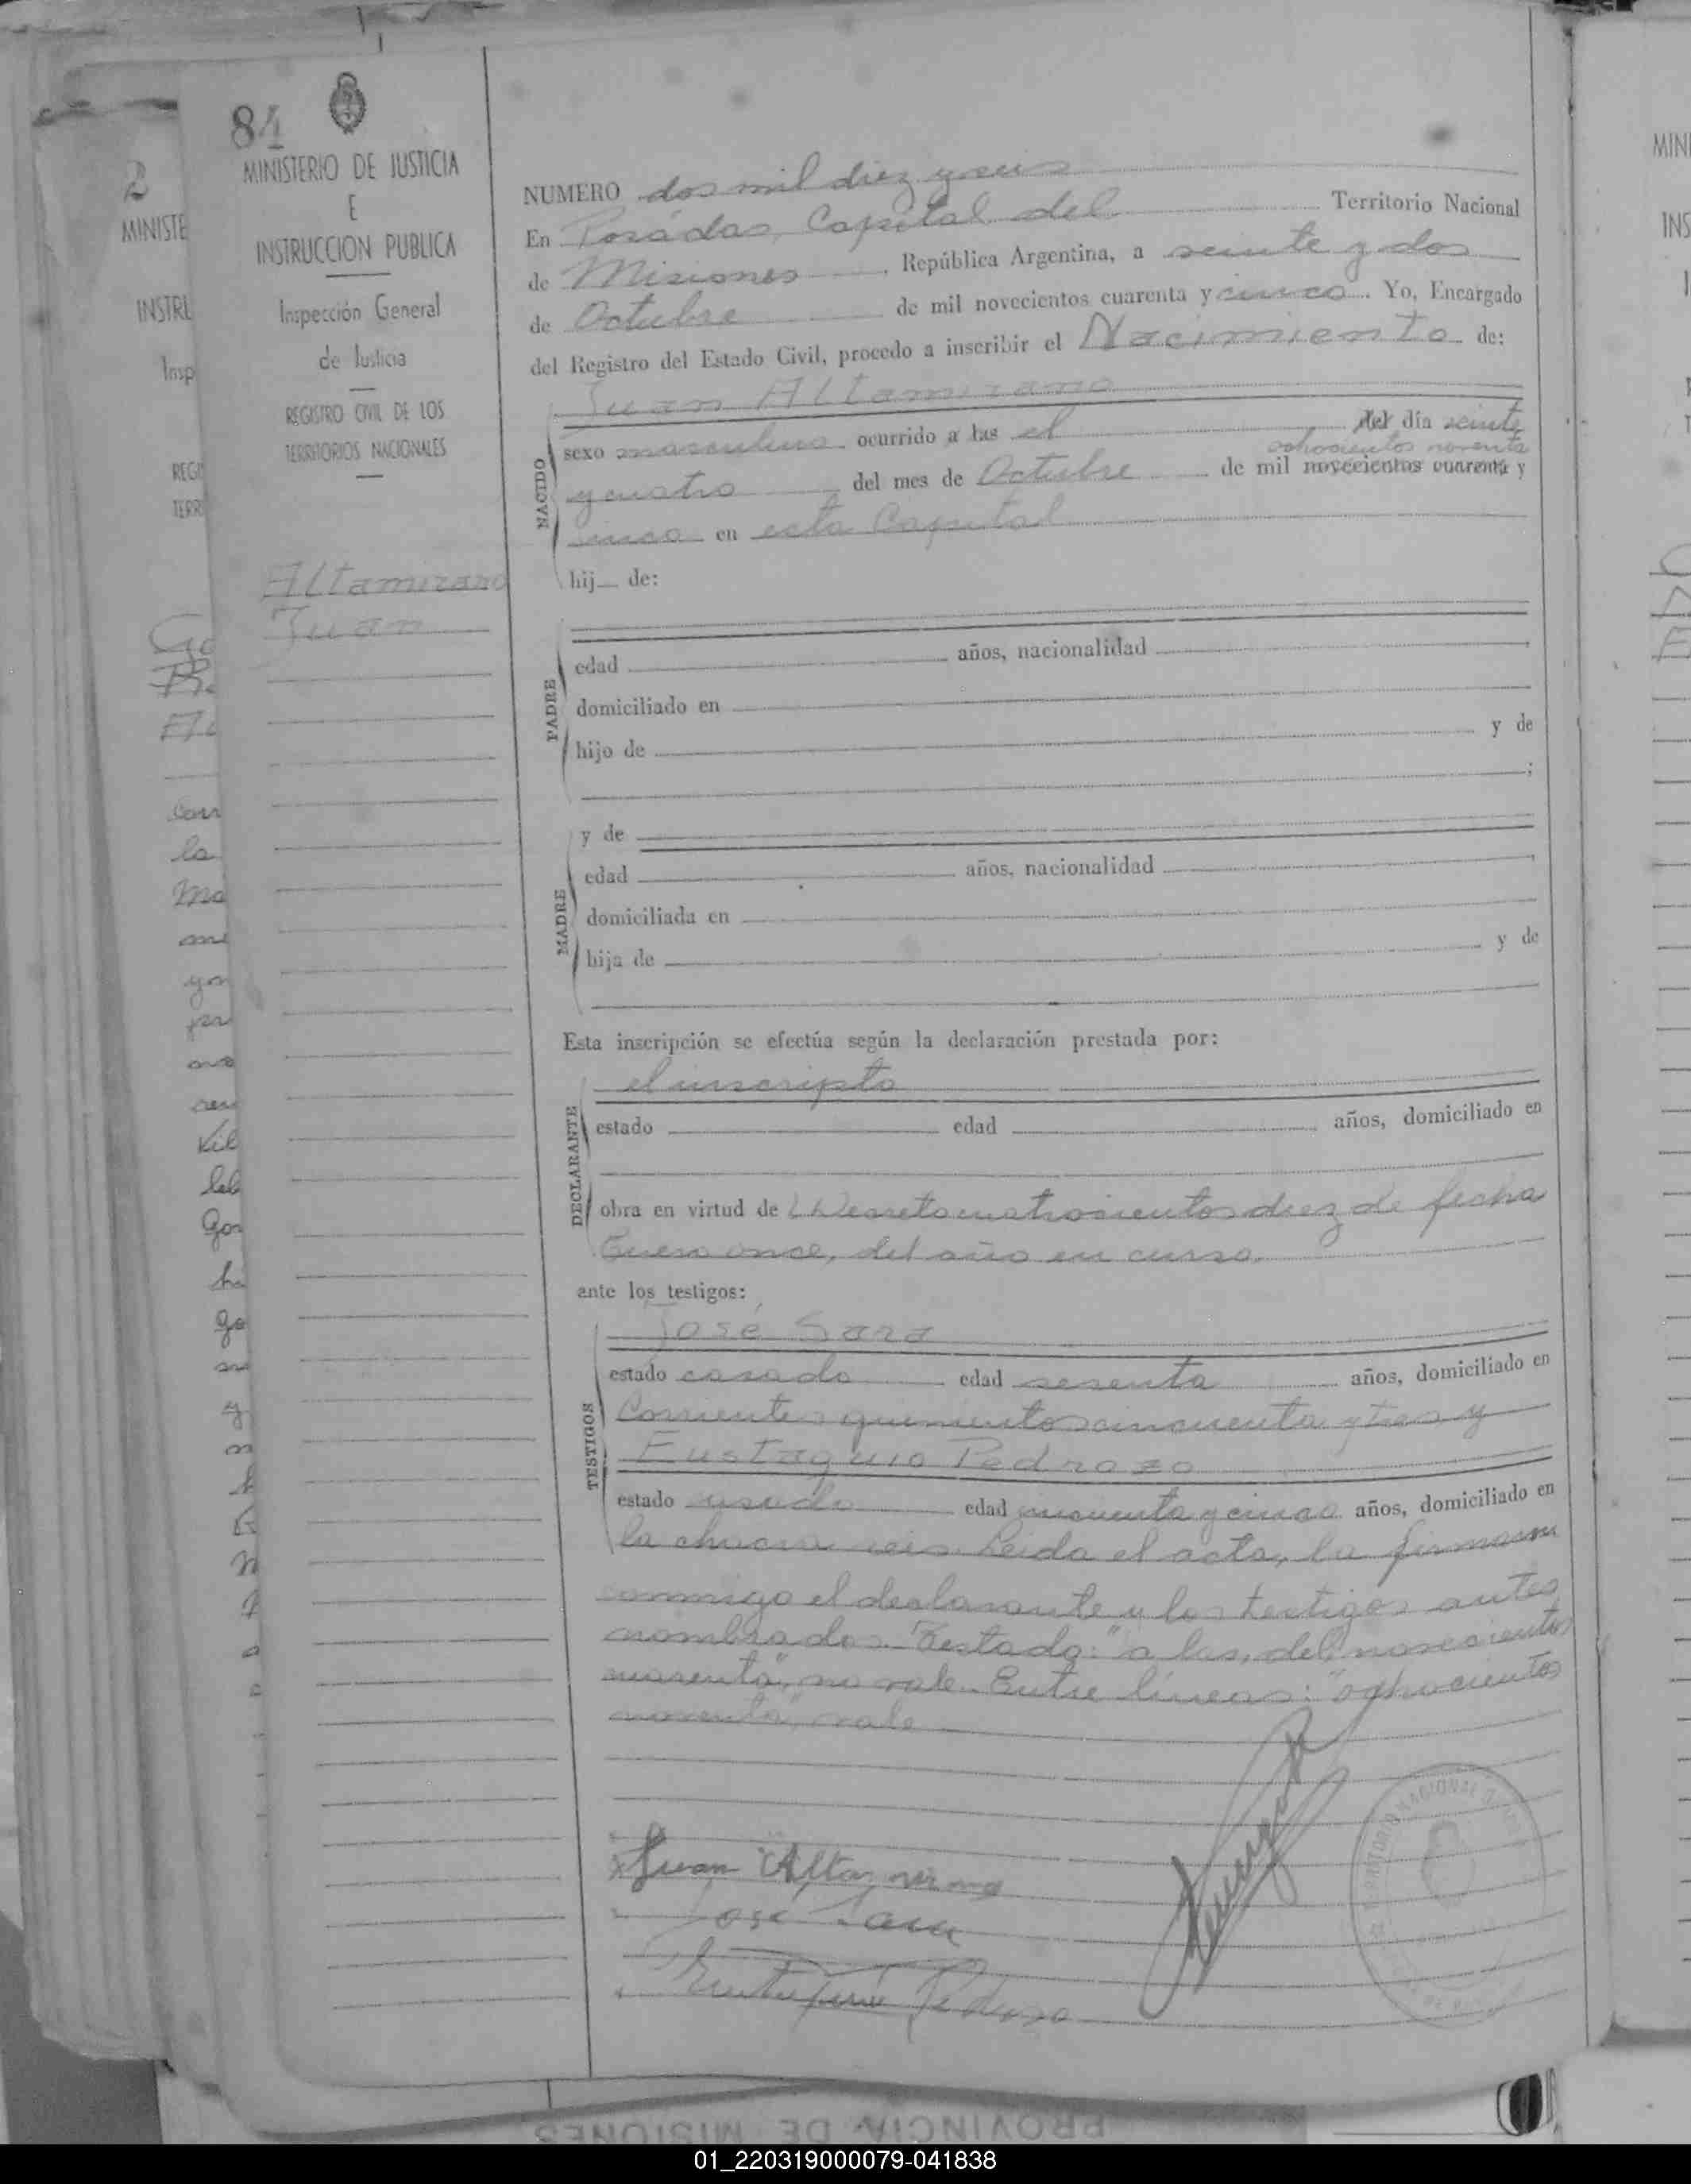 84
MINISTERIO DE JUSTICIA
E
INSTRUCCION PUBLICA
Inspección General
de Justicia
REGISTRO CIVIL DE LOS
TERRITORIOS NACIONALES
Altamirano
Juan
2
MINISTE
INSTRU
Insp
REGI
TERR
NUMERO dos mil diez y seis
En Posadas, Capital del Territorio Nacional
de Misiones, República Argentina, a veinte y dos
de Octubre de mil novecientos cuarenta y cinco. Yo, Encargado
del Registro del Estado Civil, procedo a inscribir el Nacimiento de:
NACIDO
Juan Altamirano
sexo masculino ocurrido a las el del día veinte
ochocientos noventa
y cuatro del mes de Octubre de mil novecientos cuarenta y
cinco en esta Capital
hij de:
PADRE
edad años, nacionalidad
domiciliado en
hijo de y de
;
MADRE
y de
edad años, nacionalidad
domiciliada en
hija de y de
Esta inscripción se efectúa según la declaración prestada por:
DECLARANTE
el inscripto
estado edad años, domiciliado en
obra en virtud de Decreto cuatrocientos diez de fecha
Enero once, del año en curso.
ante los testigos:
TESTIGOS
José Sara
estado casado edad sesenta años, domiciliado en
Corrientes quinientos cincuenta y tres y
Eustaquio Pedrozo
estado casado edad cincuenta y cinco años, domiciliado en
la chacra seis. Leida el acta, la firmaron
conmigo el declarante y los testigos antes
nombrados. Testado: "a las, del, novecientos
cuarenta", no vale. Entre líneas: "ochocientos
noventa", vale
Juan Altamirano
José Sara
Pedrozo
TERRITORIO NACIONAL
PROVINCIA DE MISIONES
01_220319000079-041838